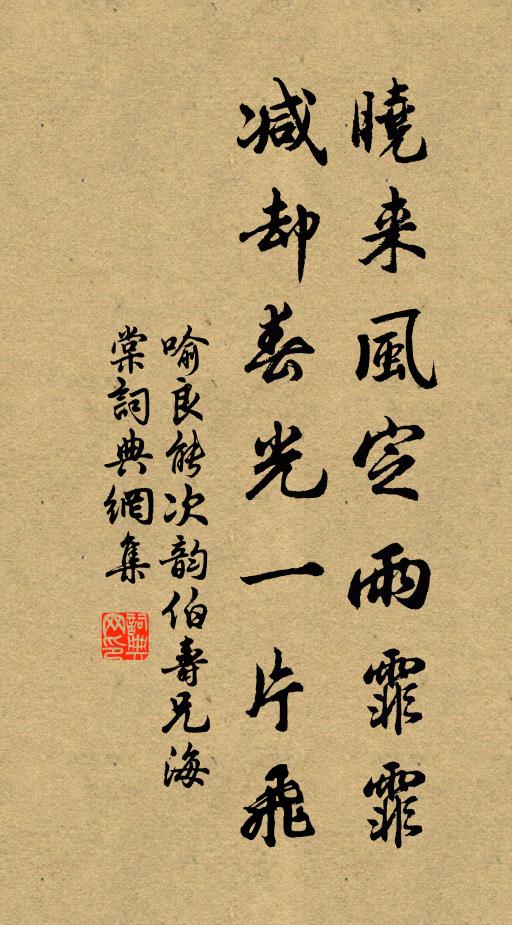 曉来風定雨霏霏
减却春光一片飛
喻良能次韵伯壽兄海
棠詞典網集
詞典網印